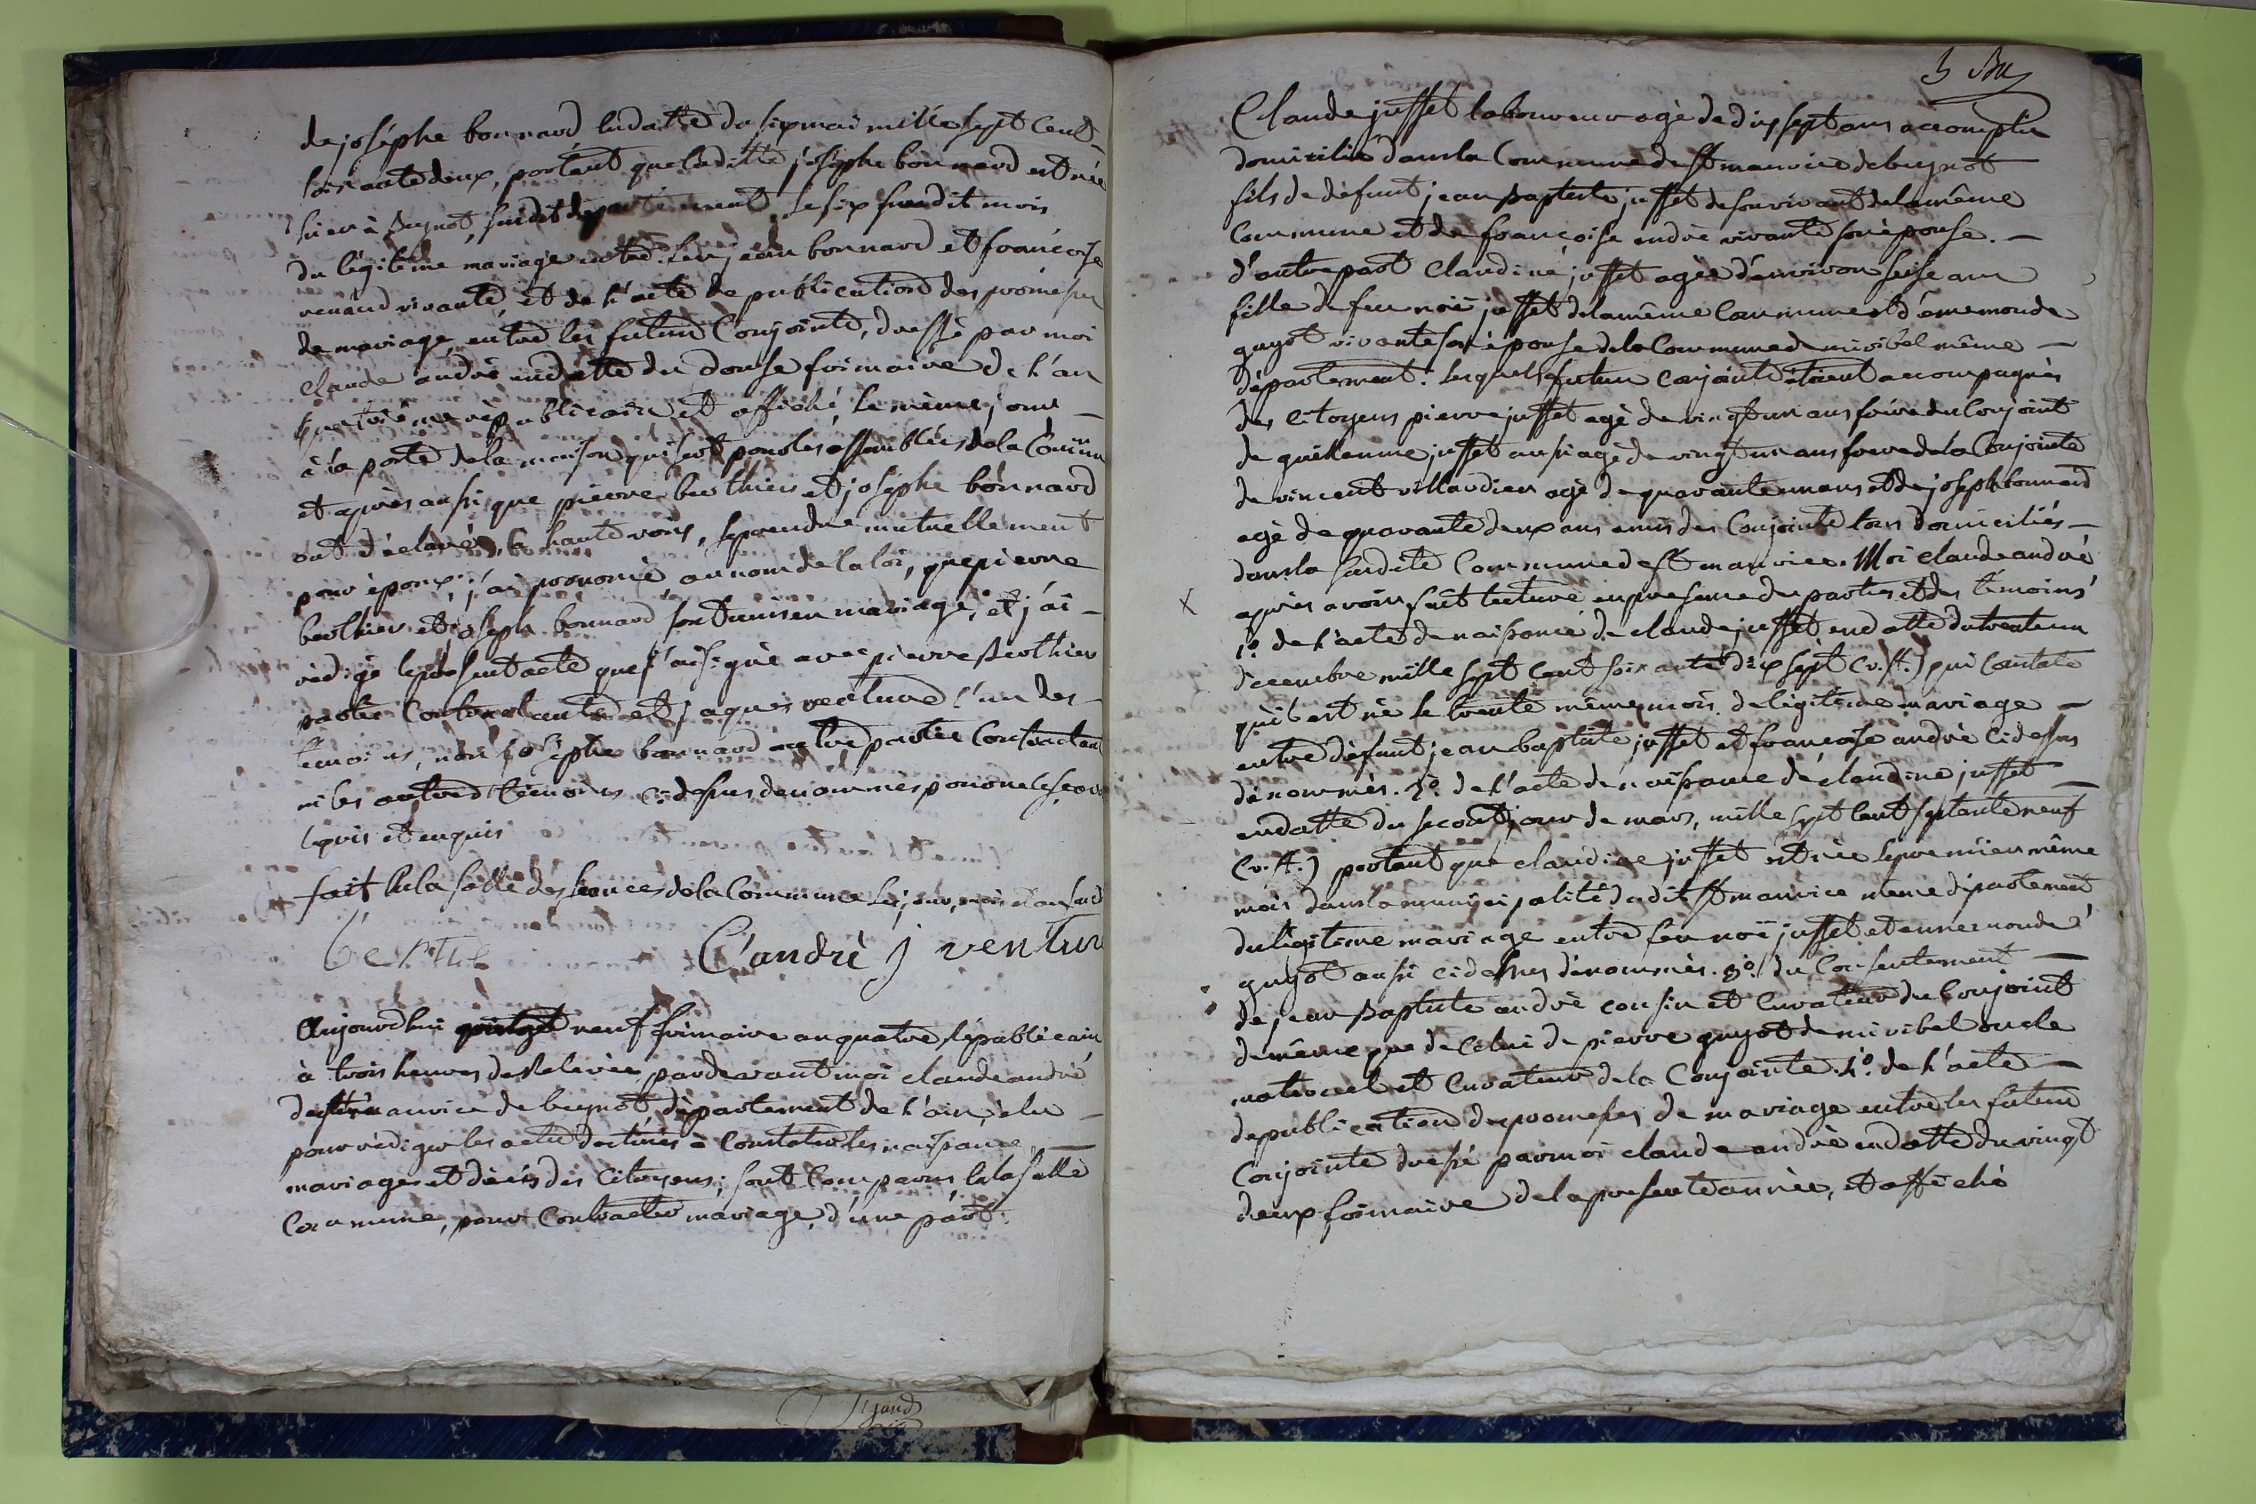 de joséphe bonnard endatté du six mai mille sept cent
soixante deux, portant que laditte joséphe bonnard est née
hier à Beynot, susdit département le six susdit mois
du légitime mariage entre feu jean bonnard et francoise
renaud vivante, et de l'acte de publication des promesses
de mariage entre les futurs Conjoints, dressé par moi
claude andré endatte du douse frimaire de l'an
quatrième républicain et affiché le même jour
à la porte de la maison qui sert pour les assemblées de la Commune
et après aussi que pierre berthier et joséphe bonnard
ont déclarés, à haute voix, se prendre mutuellement
pour époux; j'ai prononcé au nom de la loi, que pierre
berthier et joséph bonnard sont unis en mariage, et j'ai
rédigé le présent acte que j'ai signé avec pierre Berthier
partie Contractante et jaques venture l'un des
témoins, non joséphe bonnard autre partie Contractante
ni les autres témoins ci dessus dénommés pour ne le scavoir
requis et enquis
fait en la salle des séances de la Commune les jour, mois et an susdit
bertier C'andrè j ventur
Aujourdhui neuf frimaire an quatre, républicain
à trois heures de Relevée, pardevant moi claude andré
de st maurice de beynost département de l'ain, élu
pour rédiger les actes destinés à Constater les naissances,
mariages et décés des Citoyens; sont Comparus en la salle
Commune, pour Contracter mariage, d'une part
Claude jusset laboureur agé de dix sept ans accomplis
domicilié dans la Commune de St maurice de beynost
fils de défunt jean baptiste jusset de son vivant de la même
Commune et de francoise andré vivante son épouse.
d'autre part Claudine jusset agée d'environ seise ans
fille de feu noë jusset de la même Commune et d'ennemonde
guyot vivante son épouse de la Commune de miribel même
département: lesquels futurs conjoints étoient accompagnés
des Citoyens pierre jusset agé de vingt un ans frère du Conjoint
de guillaume jusset aussi agé de vingt un ans frère de la Conjointe
de vincent villardier agé de quarante un ans et de joseph bonnard
agé de quarante deux ans amis des Conjoints tous domiciliés
dans la susdite Commune de St maurice. Moi claude andré
après avoir fait lecture en presence des parties et des témoins
1º. de l'acte de naissance de claude jusset endatte du trente un
decembre mille sept cent soixante dix sept (v. st.) qui Constate
qu'il est né le trente même mois, de légitime mariage
entre défunt jean baptiste jusset et francoise andré ci dessus
dénommés. 2º. de l'acte de naissance de claudine jusset
endatte du second jour de mars, mille sept cent septante neuf
(v. st.) portant que claudine jusset est née le premier même
mois dans la municipalité dudit St maurice meme département
du légitime mariage entre feu noë jusset et ennemonde
guyot aussi ci dessus dénommés. 3º. du Consentement
de jean Baptiste andré cousin et Curateur du Conjoint
de même que de Celui de pierre guyot de miribel oncle
maternel et Curateur de la Conjointe. 4º. de l'acte
de publication de promesses de mariage entre les futurs
Conjoints dressé par moi claude andré endatte du vingt
deux frimaire de la presente année, et affiché